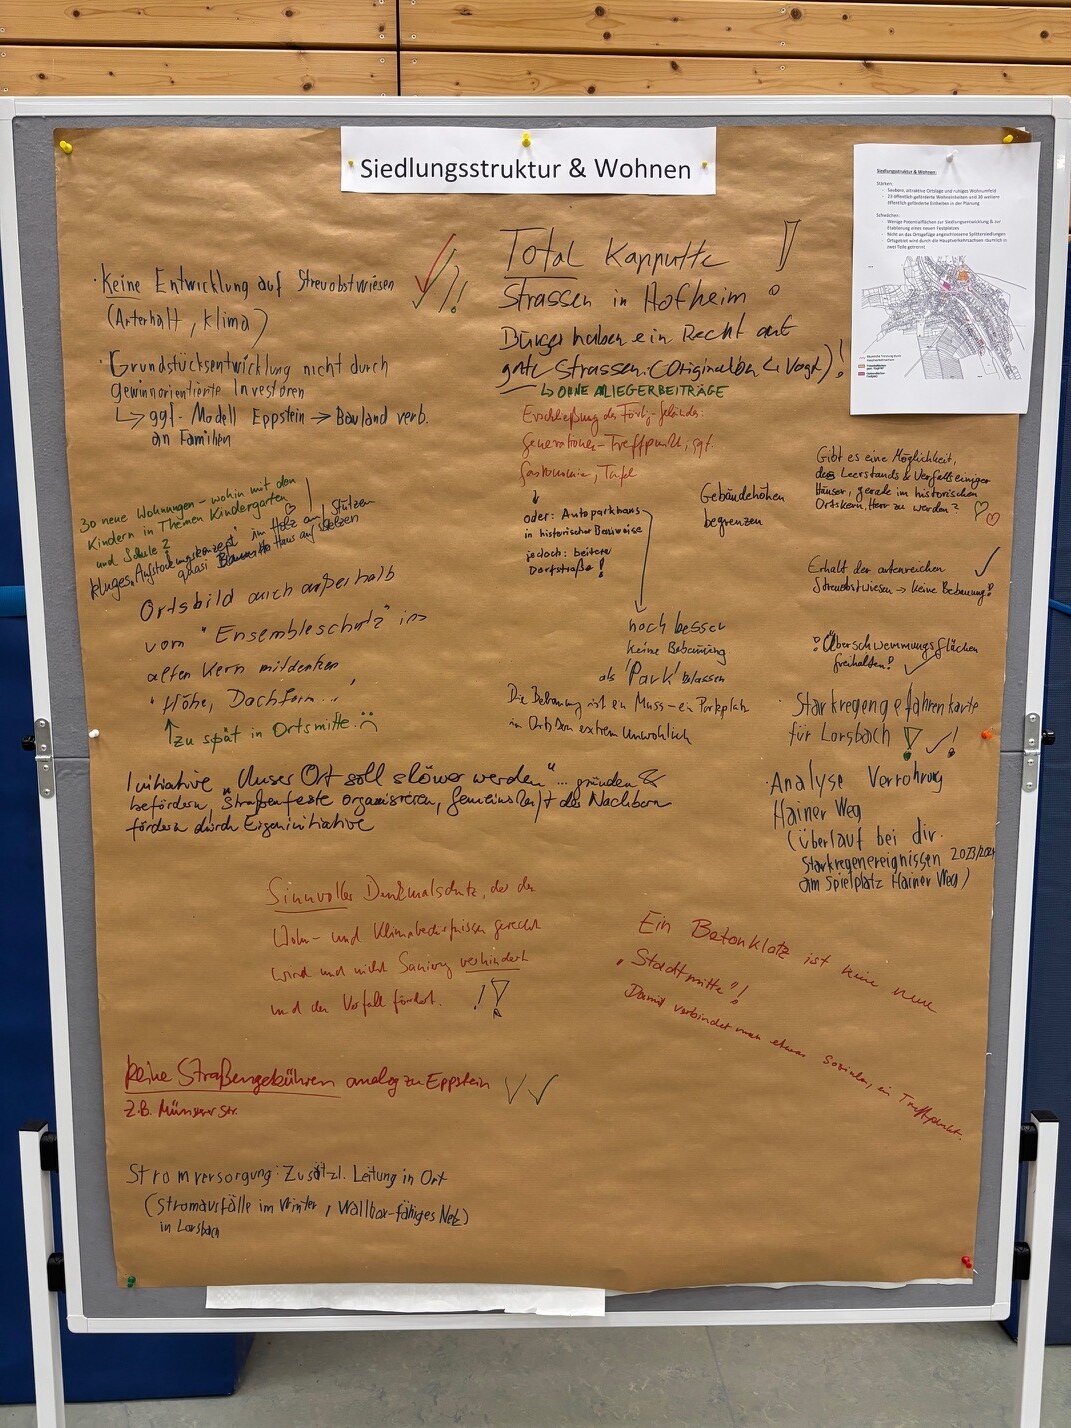 Siedlungsstruktur & Wohnen
Siedlungsstruktur & Wohnen:
Stärken:
- Saubere, attraktive Ortslage und ruhiges Wohnumfeld
- 23 öffentlich geförderte Wohneinheiten und 30 weitere
öffentlich geförderte Einheiten in der Planung
Schwächen:
- Wenige Potentialflächen zur Siedlungsentwicklung & zur
Etablierung eines neuen Festplatzes
- Nicht an das Ortsgefüge angeschlossene Splittersiedlungen
Ortsgebiet wird durch die Hauptverkehrsachsen räumlich in
zwei Teile getrennt
· Keine Entwicklung auf Streuobstwiesen
(Arterhalt, Klima)
· Grundstücksentwicklung nicht durch
gewinnorientierte Investoren
↳ ggf. Modell Eppstein → Bauland verb.
an Familien
30 neue Wohnungen – wohin mit den
Kindern in Themen Kindergarten
und Schule?
kluges Aufstockungskonzept im Holz auf Stützen
quasi Haus auf Stelzen
Ortsbild auch außerhalb
vom "Ensembleschutz" im
alten Kern mitdenken
"Höhe, Dachform..."
↑ zu spät in Ortsmitte :(
Initiative „Unser Ort soll slower werden" ... gründen &
befördern, Straßenfeste organisieren, Gemeinschaft der Nachbarn
fördern durch Eigeninitiative
Sinnvoller Denkmalschutz, der den
Wohn- und Klimabedürfnissen gerecht
wird und nicht Sanierung verhindert
und den Verfall fördert. !!
Keine Straßengebühren analog zu Eppstein ✓✓
z.B. Münsterer Str.
Stromversorgung: Zusätzl. Leitung in Ort
(Stromausfälle im Winter, Wallbox-fähiges Netz)
in Lorsbach
Total Kapputte !
Strassen in Hofheim !
Bürger haben ein Recht auf
gute Strassen. (Originalton ↳ Vogt) !
↳ OHNE ANLIEGERBEITRÄGE
Erschließung des Förtz-Geländes:
Generationen-Treffpunkt, ggf.
Gastronomie, Tafel
↓
oder: Autoparkhaus
in historischer Bauweise
jedoch: breitere
Dorfstraße!
Gebäudehöhen
begrenzen
noch besser
keine Bebauung
als 'Park' belassen
Die Bebauung ist ein Muss – ein Parkplatz
im Ortskern extrem unwohnlich
Gibt es eine Möglichkeit,
des Leerstands & Verfalls einiger
Häuser, gerade im historischen
Ortskern, Herr zu werden? ♡ ♡
Erhalt der artenreichen ✓
Streuobstwiesen → keine Bebauung!
! Überschwemmungsflächen
freihalten! ✓
Starkregengefahrenkarte
für Lorsbach ! ✓ !
· Analyse Verrohrung
Hainer Weg
(überlauf bei div.
Starkregenereignissen 2023/2024
am Spielplatz Hainer Weg)
Ein Betonklotz ist keine neue
„Stadtmitte"!
Damit verbindet man etwas Soziales, ein Treffpunkt.